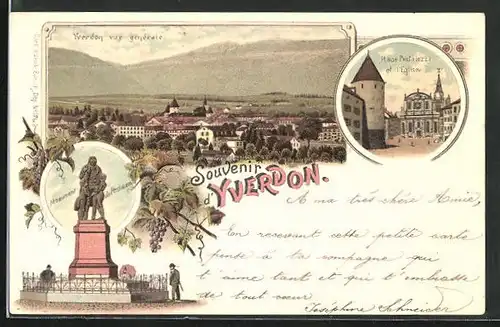 Yverdon vue générale
Place Pestalozzi
et l'Eglise
Monument Pestalozzi
Souvenir
d'YVERDON.
A ma très chère Amie,
En recevant cette petite carte
pense à ta compagne qui
t'aime tant et qui t'embrasse
de tout cœur
Joséphine Schneider